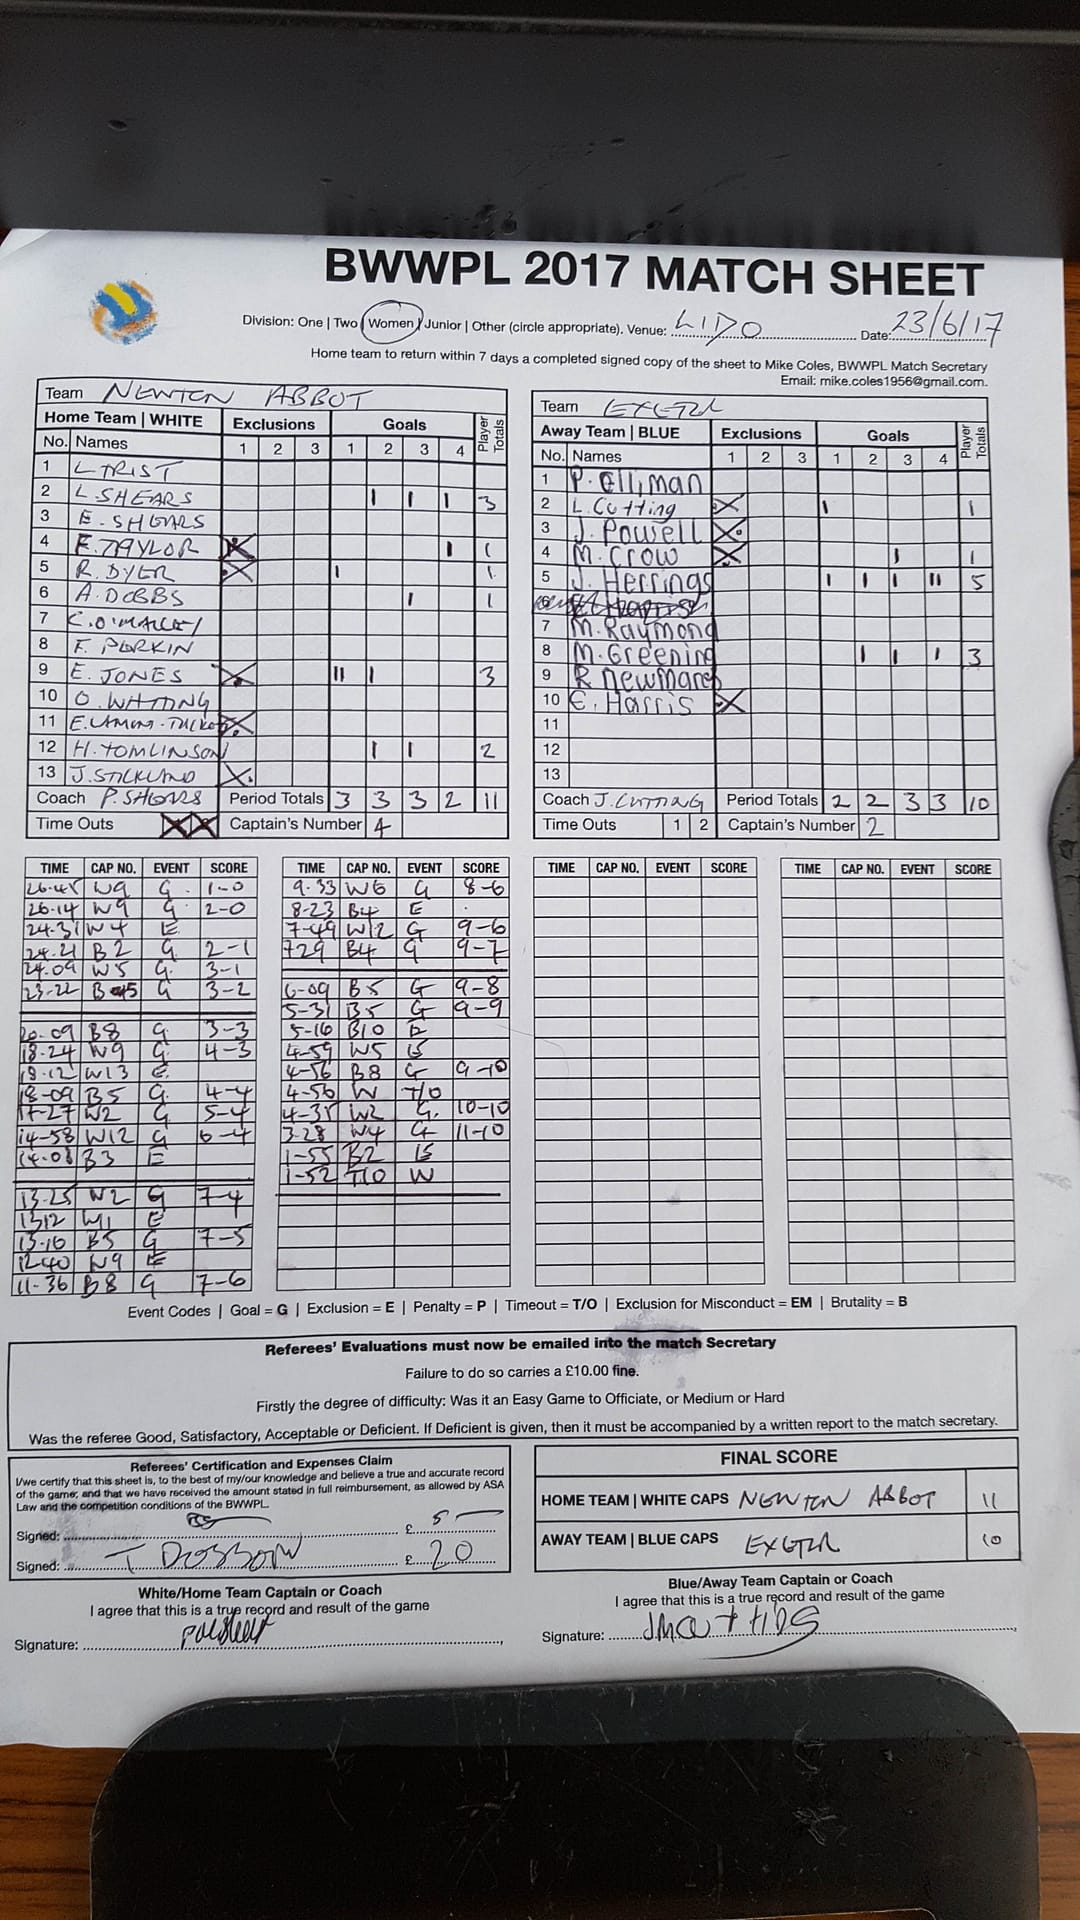 BWWPL 2017 MATCH SHEET
Division: One | Two | Women | Junior | Other (circle appropriate). Venue: LIDO Date: 23/6/17
Home team to return within 7 days a completed signed copy of the sheet to Mike Coles, BWWPL Match Secretary
Email: mike.coles1956@gmail.com.
Team NEWTON ABBOT
Home Team | WHITE Exclusions Goals Player Totals
No. Names 1 2 3 1 2 3 4
1 L TRIST
2 L. SHEARS I I I 3
3 E. SHEARS
4 F. TAYLOR X I 1
5 R. DYER X I 1
6 A. DOBBS I 1
7 C. O'MALLEY
8 F. PERKIN
9 E. JONES X II I 3
10 O. WHITING
11 E. X
12 H. TOMLINSON I I 2
13 J. STICKLAND X
Coach P. SHEARS Period Totals 3 3 3 2 11
Time Outs X X Captain's Number 4
Team EXETER
Away Team | BLUE Exclusions Goals Player Totals
No. Names 1 2 3 1 2 3 4
1 P. Elliman
2 L. Cutting X I 1
3 J. Powell X
4 M. Crow X I 1
5 J. Herrings I I I II 5
7 M. Raymond
8 M. Greening I I I 3
9 R Newman
10 E. Harris X
11
12
13
Coach J. CUTTING Period Totals 2 2 3 3 10
Time Outs 1 2 Captain's Number 2
TIME CAP NO. EVENT SCORE
26-45 W9 G 1-0
26-14 W9 G 2-0
24-31 W4 E
24-21 B2 G 2-1
24-09 W5 G 3-1
23-22 B5 G 3-2
20-09 B8 G 3-3
18-24 W9 G 4-3
18-12 W13 E
18-09 B5 G 4-4
17-27 W2 G 5-4
14-58 W12 G 6-4
14-08 B3 E
13-25 W2 G 7-4
1312 W11 E
13-10 B5 G 7-5
12-40 W9 E
11-36 B8 G 7-6
TIME CAP NO. EVENT SCORE
9-33 W6 G 8-6
8-23 B4 E
7-49 W12 G 9-6
729 B4 G 9-7
6-09 B5 G 9-8
5-31 B5 G 9-9
5-16 B10 E
4-59 W5 E
4-56 B8 G 9-10
4-56 W T/O
4-35 W2 G. 10-10
3-28 W4 G 11-10
1-55 B2 E
1-52 T/O W
TIME CAP NO. EVENT SCORE
TIME CAP NO. EVENT SCORE
Event Codes | Goal = G | Exclusion = E | Penalty = P | Timeout = T/O | Exclusion for Misconduct = EM | Brutality = B
Referees' Evaluations must now be emailed into the match Secretary
Failure to do so carries a £10.00 fine.
Firstly the degree of difficulty: Was it an Easy Game to Officiate, or Medium or Hard
Was the referee Good, Satisfactory, Acceptable or Deficient. If Deficient is given, then it must be accompanied by a written report to the match secretary.
Referees' Certification and Expenses Claim
I/we certify that this sheet is, to the best of my/our knowledge and believe a true and accurate record
of the game; and that we have received the amount stated in full reimbursement, as allowed by ASA
Law and the competition conditions of the BWWPL.
Signed: £ 5 —
Signed: T DOBSON £ 20
FINAL SCORE
HOME TEAM | WHITE CAPS NEWTON ABBOT 11
AWAY TEAM | BLUE CAPS EXETER 10
White/Home Team Captain or Coach
I agree that this is a true record and result of the game
Signature:
Blue/Away Team Captain or Coach
I agree that this is a true record and result of the game
Signature: